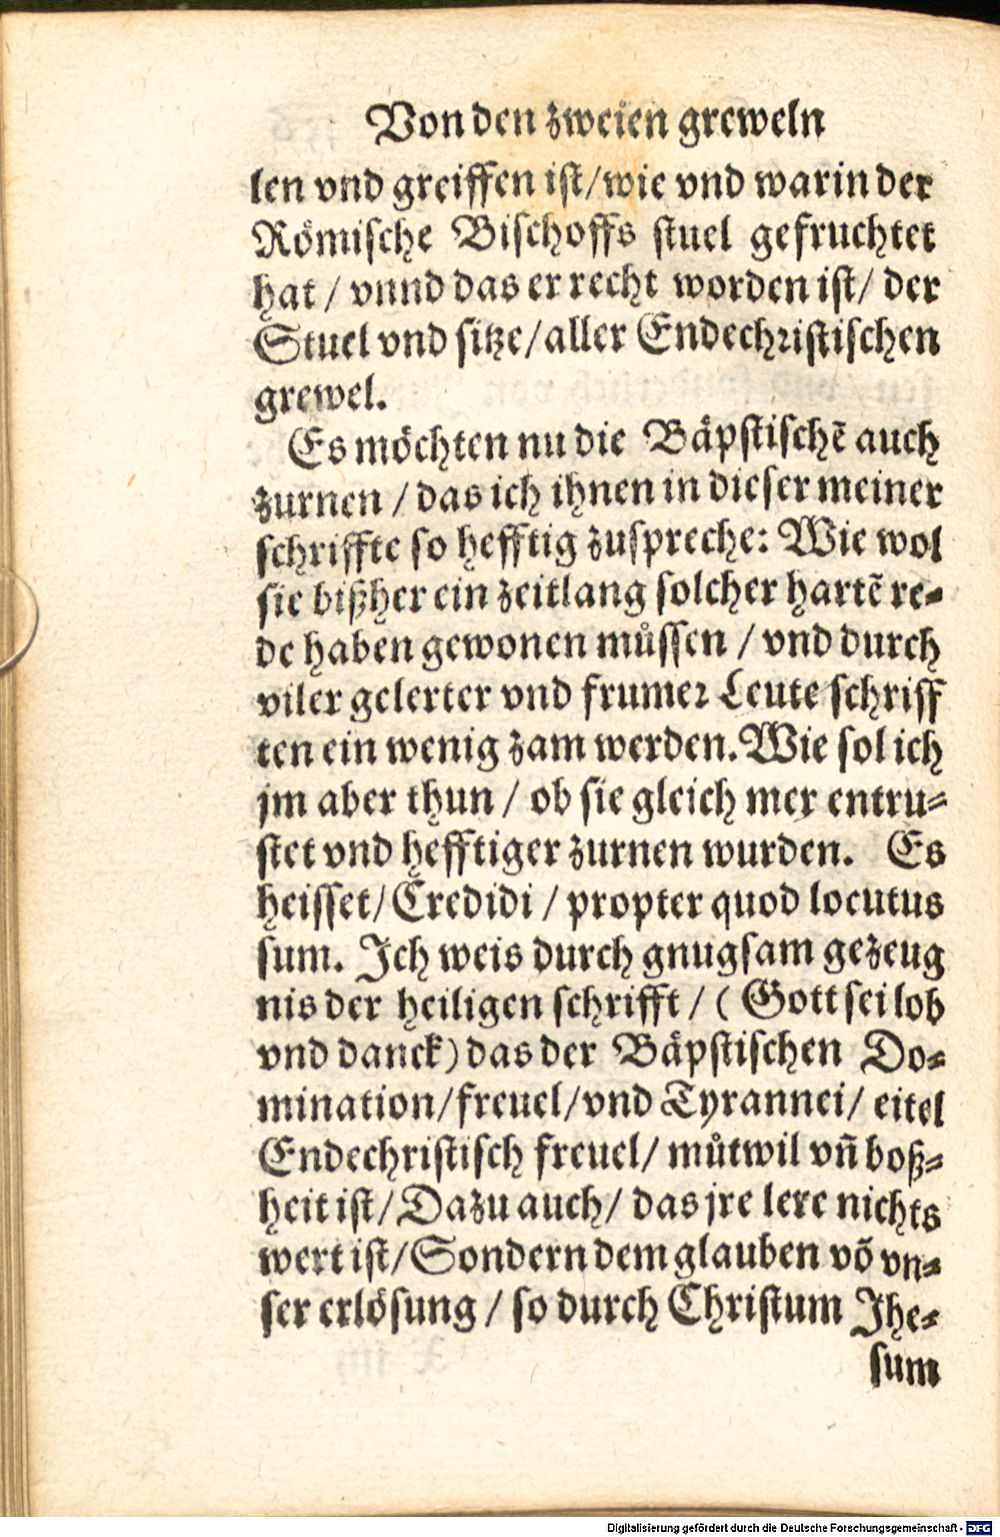 Von den zweien greweln
len vnd greiffen ist/wie vnd warin der
Römische Bischoffs stuel gefruchtet
hat / vnnd das er recht worden ist/ der
Stuel vnd sitze/aller Endechristischen
grewel.
Es möchten nu die Bäpstischẽ auch
zurnen / das ich ihnen in dieser meiner
schriffte so hefftig zuspreche: Wie wol
sie bißher ein zeitlang solcher hartẽ re-
de haben gewonen můssen / vnd durch
viler gelerter vnd frumer Leute schriff
ten ein wenig zam werden. Wie sol ich
jm aber thun / ob sie gleich mer entru-
stet vnd hefftiger zurnen wurden. Es
heisset/Credidi / propter quod locutus
sum. Ich weis durch gnugsam gezeug
nis der heiligen schrifft / ( Gott sei lob
vnd danck) das der Bäpstischen Do-
mination/freuel/vnd Tyrannei/ eitel
Endechristisch freuel/ můtwil vñ boß-
heit ist/Dazu auch/ das jre lere nichts
wert ist/Sondern dem glauben võ vn-
ser erlösung / so durch Christum Jhe-
sum
Digitalisierung gefördert durch die Deutsche Forschungsgemeinschaft - DFG